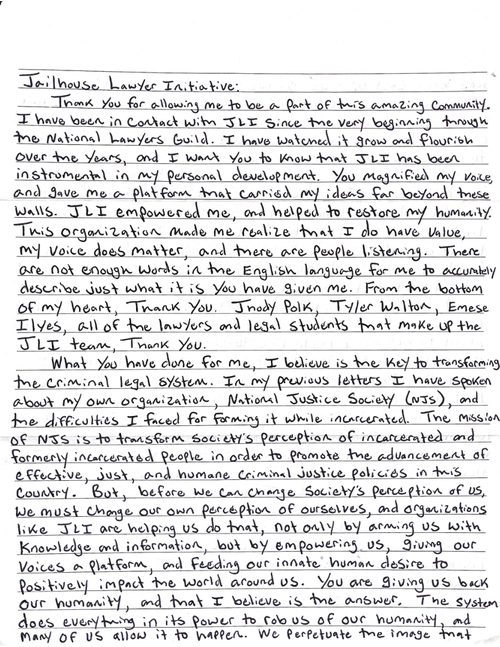 Jailhouse Lawyer Initiative:
Thank You for allowing me to be a part of this amazing Community.
I have been in Contact with JLI Since the very beginning through
the National Lawyers Guild. I have watched it grow and flourish
over the Years, and I want You to know that JLI has been
instrumental in my personal development. You magnified my voice,
and gave me a platform that carried my ideas far beyond these
walls. JLI empowered me, and helped to restore my humanity.
This organization made me realize that I do have value,
my voice does matter, and there are people listening. There
are not enough words in the English language for me to accurately
describe just what it is You have given me. From the bottom
of my heart, Thank You. Jhody Polk, Tyler Walton, Emese
Ilyes, all of the lawyers and legal students that make up the
JLI team, Thank You.
What You have done for me, I believe is the key to transforming
the criminal legal system. In my previous letters I have spoken
about my own organization, National Justice Society (NJS), and
the difficulties I faced for forming it while incarcerated. The mission
of NJS is to transform society's perception of incarcerated and
formerly incarcerated people in order to promote the advancement of
effective, just, and humane Criminal justice policies in this
Country. But, before we can change Society's perception of us,
we must change our own perception of ourselves, and organizations
like JLI are helping us do that, not only by arming us with
Knowledge and information, but by empowering us, giving our
voices a platform, and feeding our innate human desire to
positively impact the world around us. You are giving us back
our humanity, and that I believe is the answer. The system
does everything in its power to rob us of our humanity, and
many of us allow it to happen. We perpetuate the image that